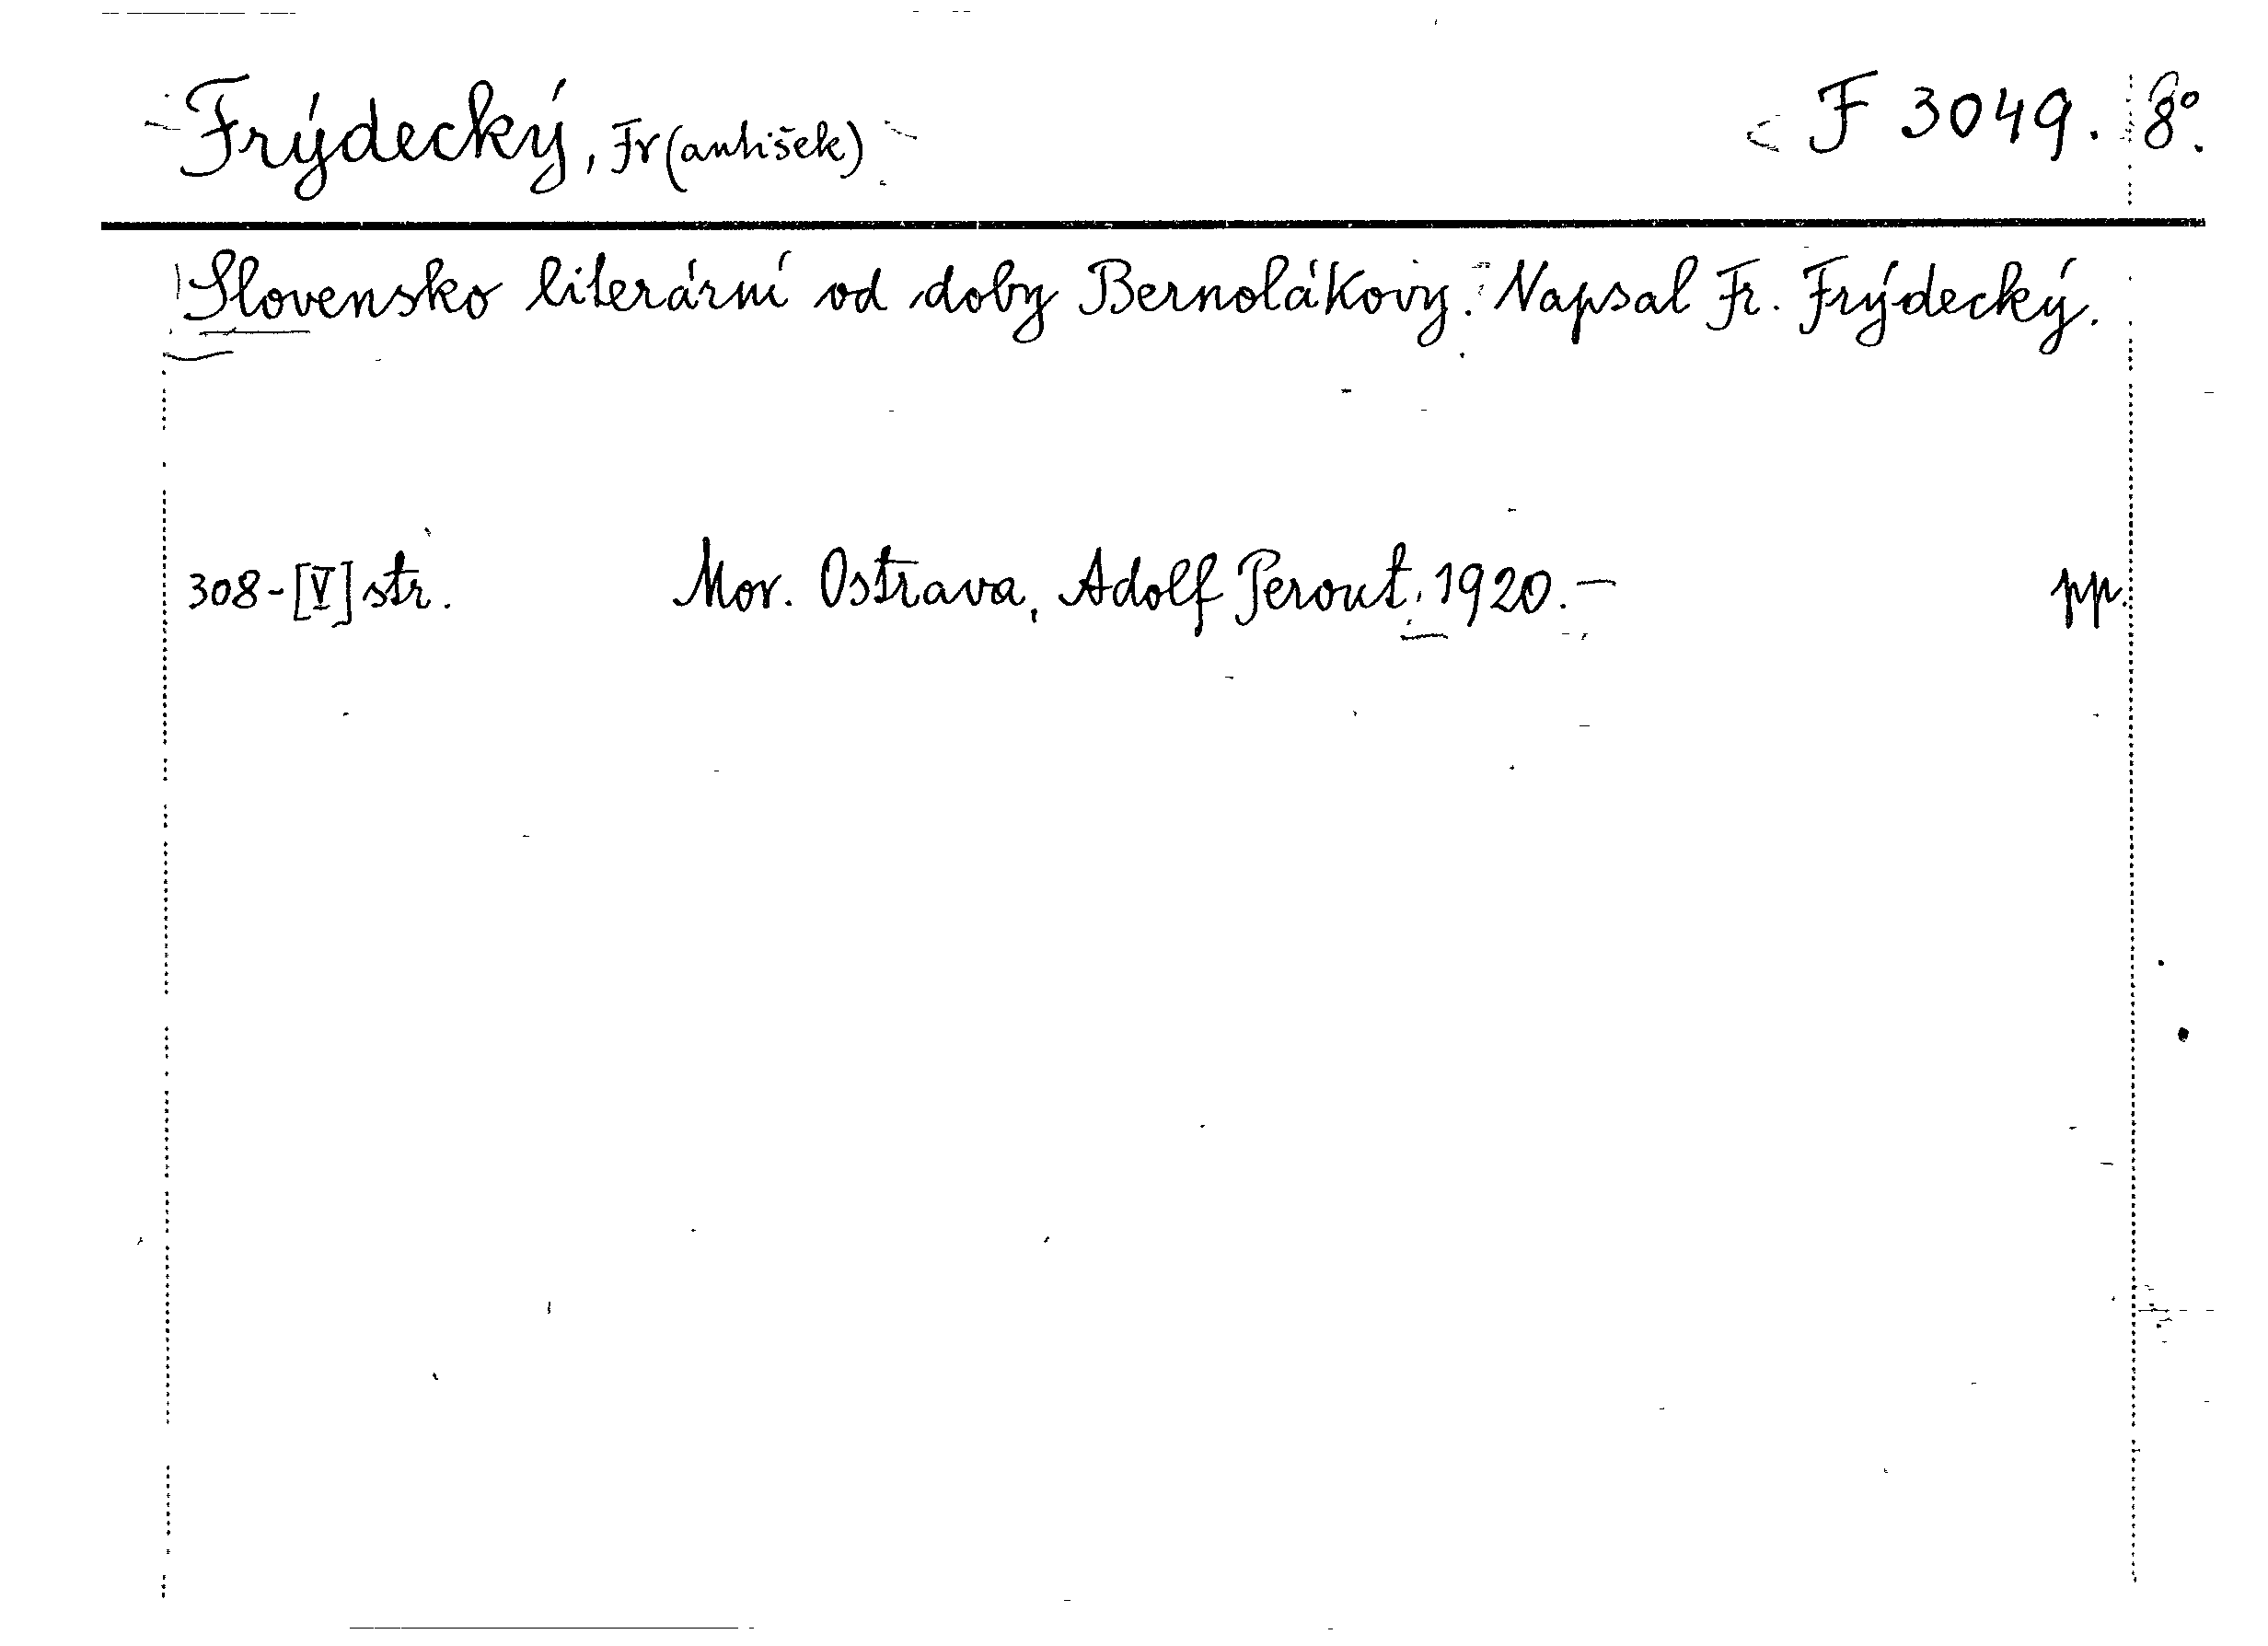 Frýdecký, Fr(antišek) F 3049. 8°.
Slovensko literární od doby Bernolákovy. Napsal Fr. Frýdecký.
308-[V] str. Mor. Ostrava, Adolf Perout, 1920.— pp.